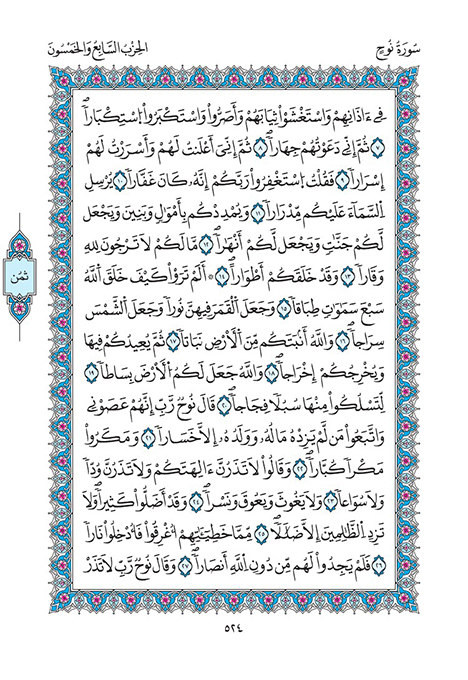 سُورَةُ نُوحٍ
الحِزْبُ السَّابِعُ وَالخَمْسُونَ
فِےٓ ءَاذَانِهِمْ وَاسْتَغْشَوْاْ ثِيَابَهُمْ وَأَصَرُّواْ وَاسْتَكْبَرُواْ اسْتِكْبَاراً
٧ ثُمَّ إِنِّے دَعَوْتُهُمْ جِهَاراً ٨ ثُمَّ إِنِّيَ أَعْلَنتُ لَهُمْ وَأَسْرَرْتُ لَهُمُ
إِسْرَاراً ٩ فَقُلْتُ اسْتَغْفِرُواْ رَبَّكُمْ إِنَّهُۥ كَانَ غَفَّاراً ١٠ يُرْسِلِ
السَّمَآءَ عَلَيْكُم مِّدْرَاراً ١١ وَيُمْدِدْكُم بِأَمْوَالٍ وَبَنِينَ وَيَجْعَل
لَّكُمْ جَنَّٰتٍ وَيَجْعَل لَّكُمُ أَنْهَٰراً ١٢ مَّا لَكُمْ لَا تَرْجُونَ لِلهِ
وَقَاراً ١٣ وَقَدْ خَلَقَكُمُ أَطْوَاراً ١٤ * أَلَمْ تَرَوْاْ كَيْفَ خَلَقَ اللَّهُ
سَبْعَ سَمَٰوَٰتٍ طِبَاقاً ١٥ وَجَعَلَ الْقَمَرَ فِيهِنَّ نُوراً وَجَعَلَ الشَّمْسَ
سِرَاجاً ١٦ وَاللَّهُ أَنۢبَتَكُم مِّنَ الْأَرْضِ نَبَاتاً ١٧ ثُمَّ يُعِيدُكُمْ فِيهَا
وَيُخْرِجُكُمُ إِخْرَاجاً ١٨ وَاللَّهُ جَعَلَ لَكُمُ الْأَرْضَ بِسَاطاً ١٩
لِّتَسْلُكُواْ مِنْهَا سُبُلًا فِجَاجاً ٢٠ قَالَ نُوحٌ رَّبِّ إِنَّهُمْ عَصَوْنِے
وَاتَّبَعُواْ مَن لَّمْ يَزِدْهُ مَالُهُۥ وَوَلَدُهُۥٓ إِلَّا خَسَاراً ٢١ وَمَكَرُواْ
مَكْراً كُبَّاراً ٢٢ وَقَالُواْ لَا تَذَرُنَّ ءَالِهَتَكُمْ وَلَا تَذَرُنَّ وُدّاً
وَلَا سُوَاعاً ٢٣ وَلَا يَغُوثَ وَيَعُوقَ وَنَسْراً ٢٤ وَقَدْ أَضَلُّواْ كَثِيراً وَلَا
تَزِدِ الظَّٰلِمِينَ إِلَّا ضَلَٰلاً ٢٥ مِّمَّا خَطِيٓـَٰٔتِهِمُ أُغْرِقُواْ فَأُدْخِلُواْ نَاراً
٢٦ فَلَمْ يَجِدُواْ لَهُم مِّن دُونِ اللَّهِ أَنصَاراً ٢٧ وَقَالَ نُوحٌ رَّبِّ لَا تَذَرْ
ثمُن
٥٢٤